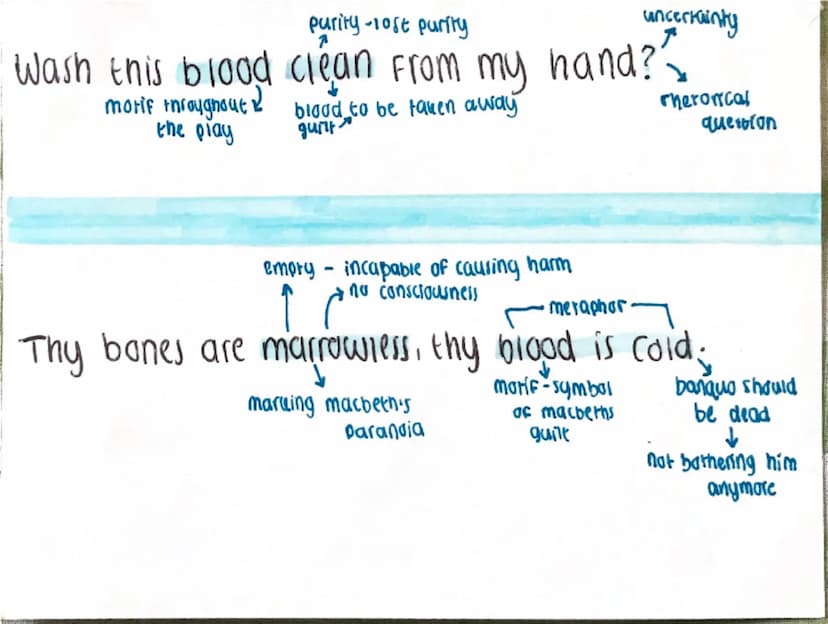 purity - lost purity
uncertainty
Wash this blood clean from my hand?
motif throughout
the play
blood to be taken away
guilt
rhetorical
question
empty - incapable of causing harm
no consciousness
metaphor
Thy bones are marrowless, thy blood is cold.
marking macbeth's
paranoia
motif - symbol
of macbeths
guilt
banquo should
be dead
not bothering him
anymore